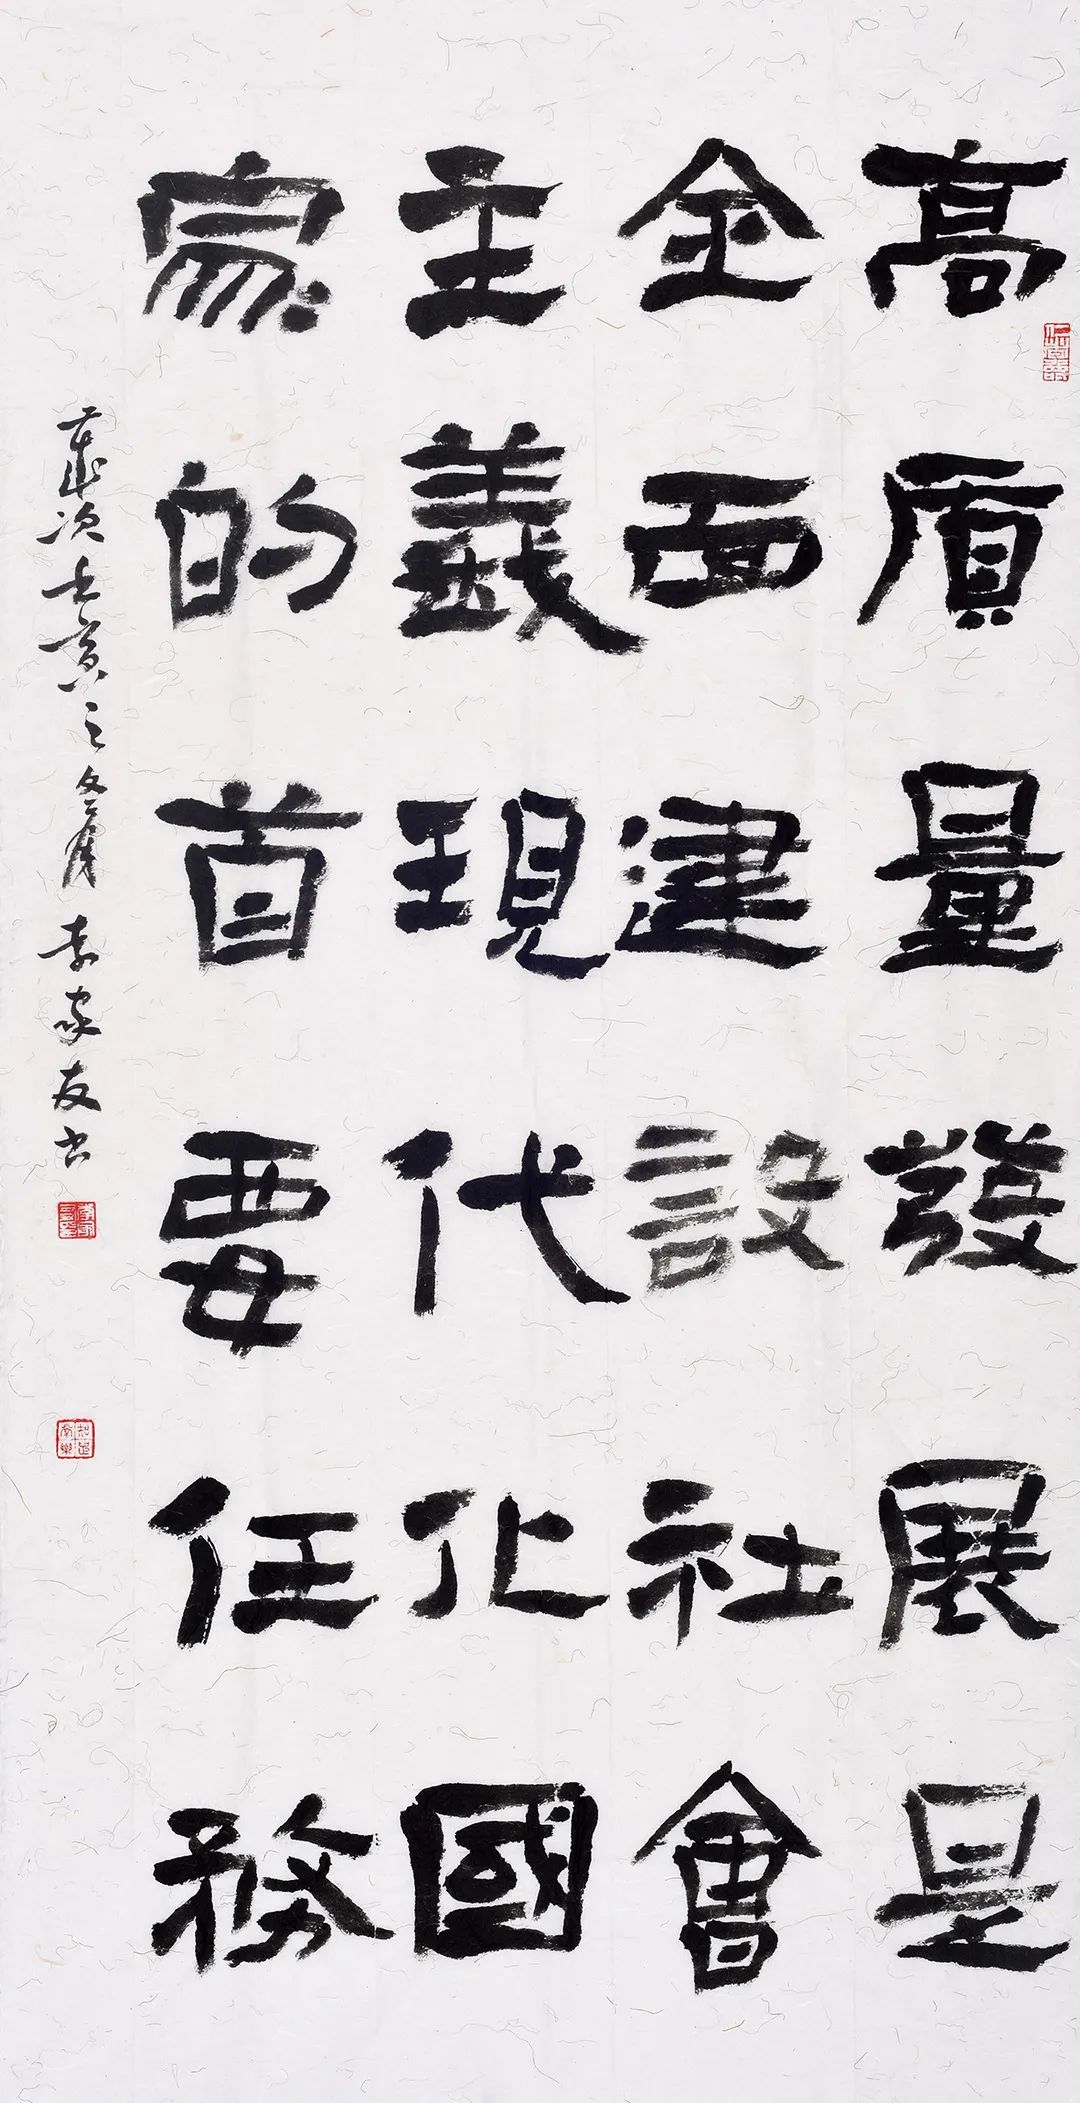 高質量發展是
全面建設社會
主義現代化國
家的首要任務
歲次壬寅之冬月李家友書
知足常樂